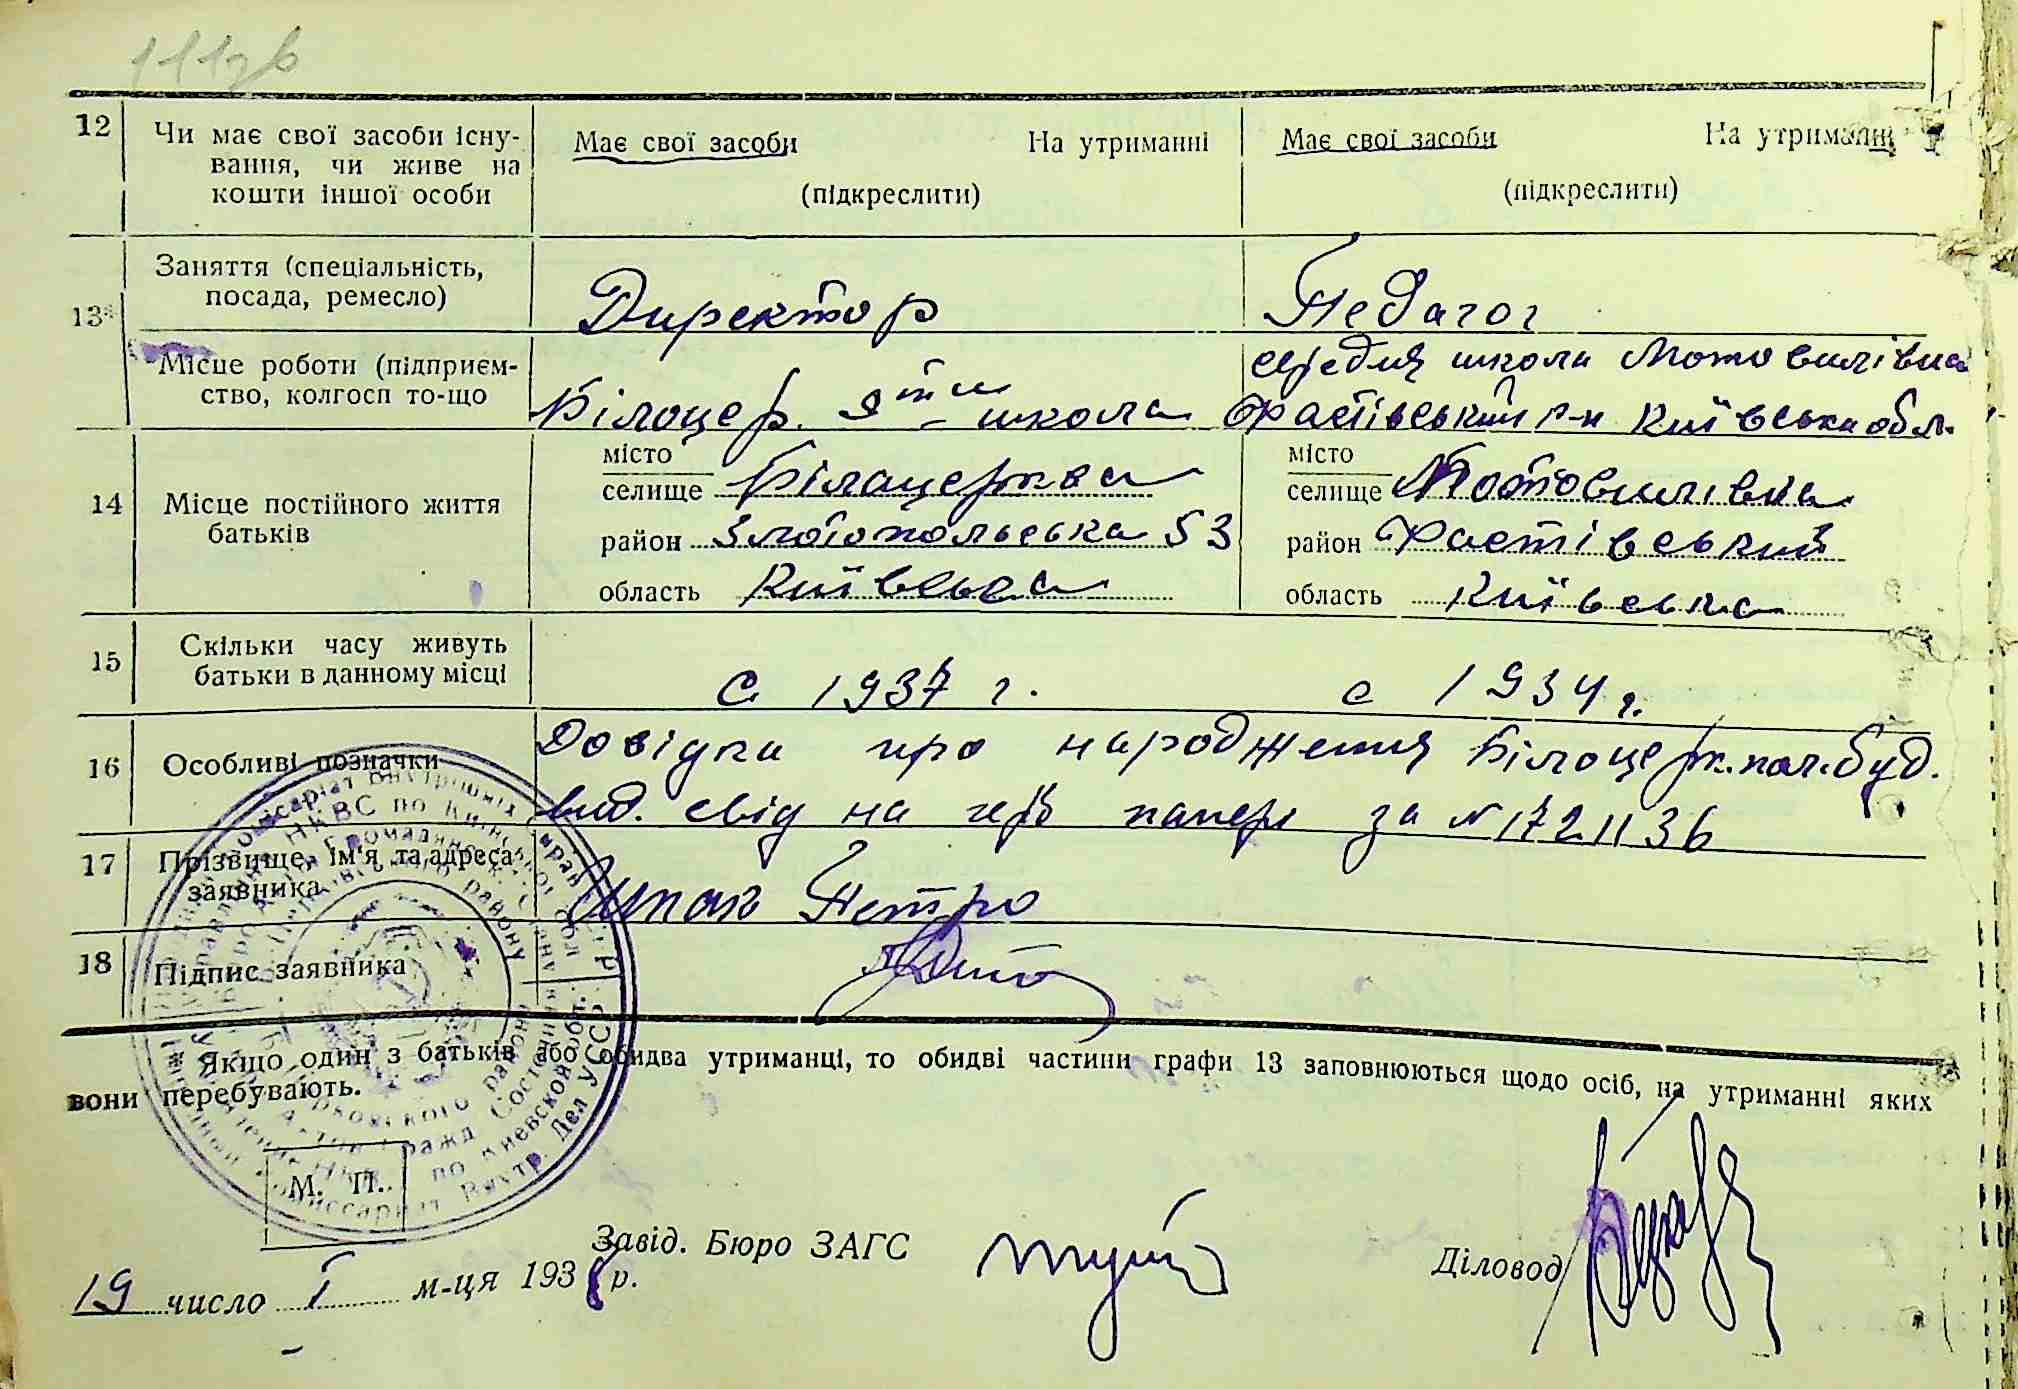 111зв
12 Чи має свої засоби існу-
вання, чи живе на
кошти іншої особи
Має свої засоби На утриманні
(підкреслити)
Має свої засоби На утриманні
(підкреслити)
13 Заняття (спеціальність,
посада, ремесло)
Директор
Педагог
Місце роботи (підприєм-
ство, колгосп то-що
Білоцер. школа
середня школа Мотовилівка
Фастівський р-н Київська обл.
14 Місце постійного життя
батьків
місто
селище Білацерква
район Злотопольська 53
область Київська
місто
селище Мотовилівка
район Фастівський
область Київська
15 Скільки часу живуть
батьки в данному місці
С 1937 г.
с 1934 г.
16 Особливі позначки
Довідка про народження Білоцерк. пол. буд.
вид. свід на герб папері за № 1721136
17 Прізвище, ім'я та адреса
заявника
Шпак Петро
18 Підпис заявника
Якщо один з батьків або обидва утриманці, то обидві частини графи 13 заповнюються щодо осіб, на утриманні яких
вони перебувають.
М. П.
Завід. Бюро ЗАГС
Діловод
19 число I м-ця 1938 р.